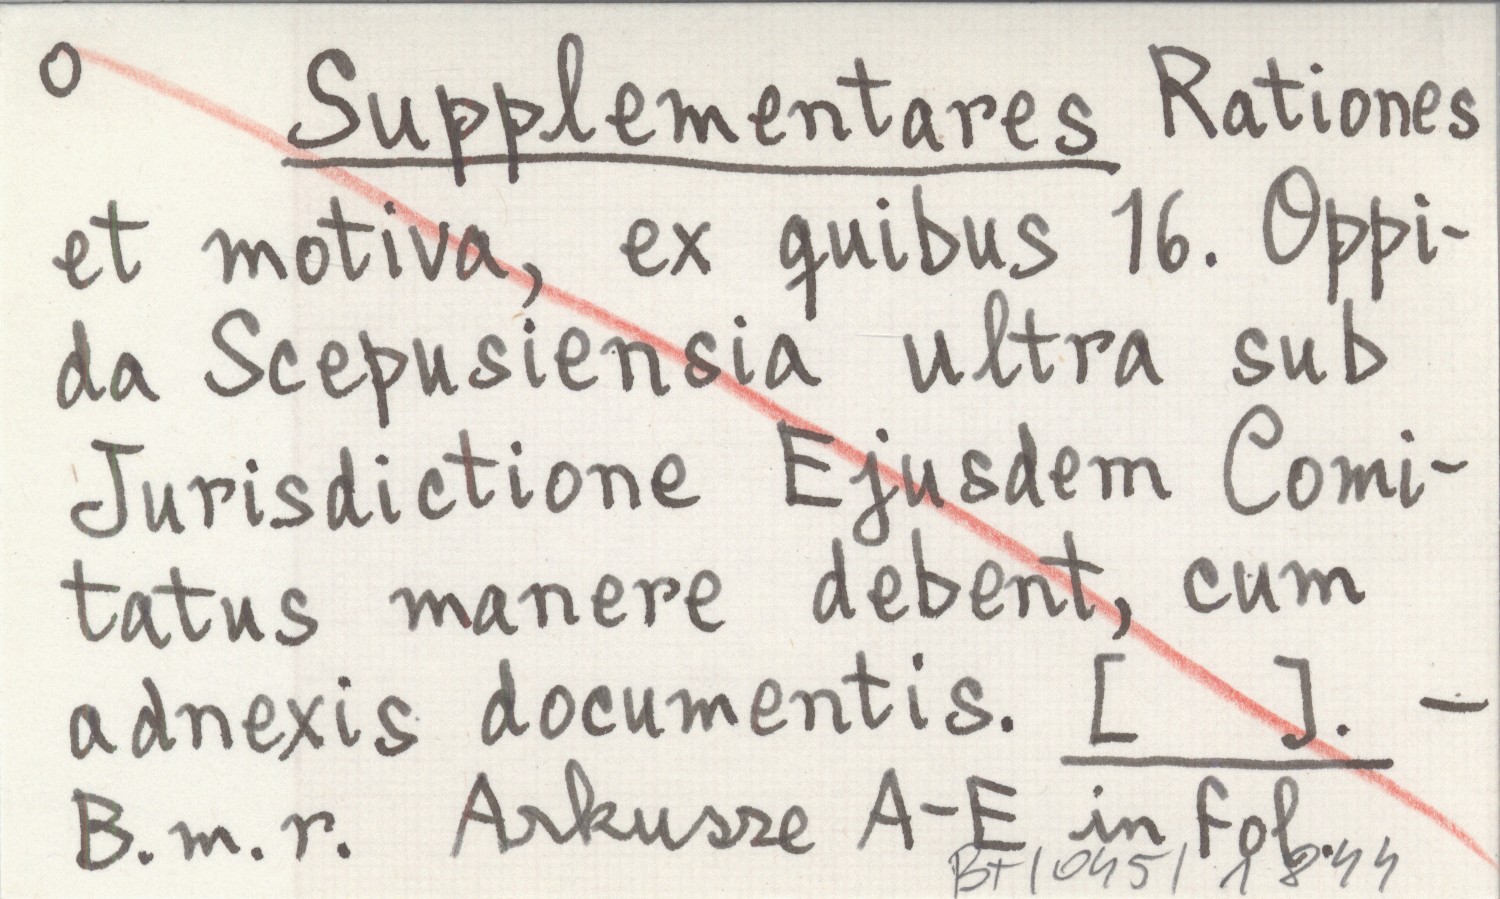 o Supplementares Rationes
et motiva, ex quibus 16. Oppi-
da Scepusiensia ultra sub
Jurisdictione Ejusdem Comi-
tatus manere debent, cum
adnexis documentis. [ ]. -
B.m.r. Arkusze A-E in fol.